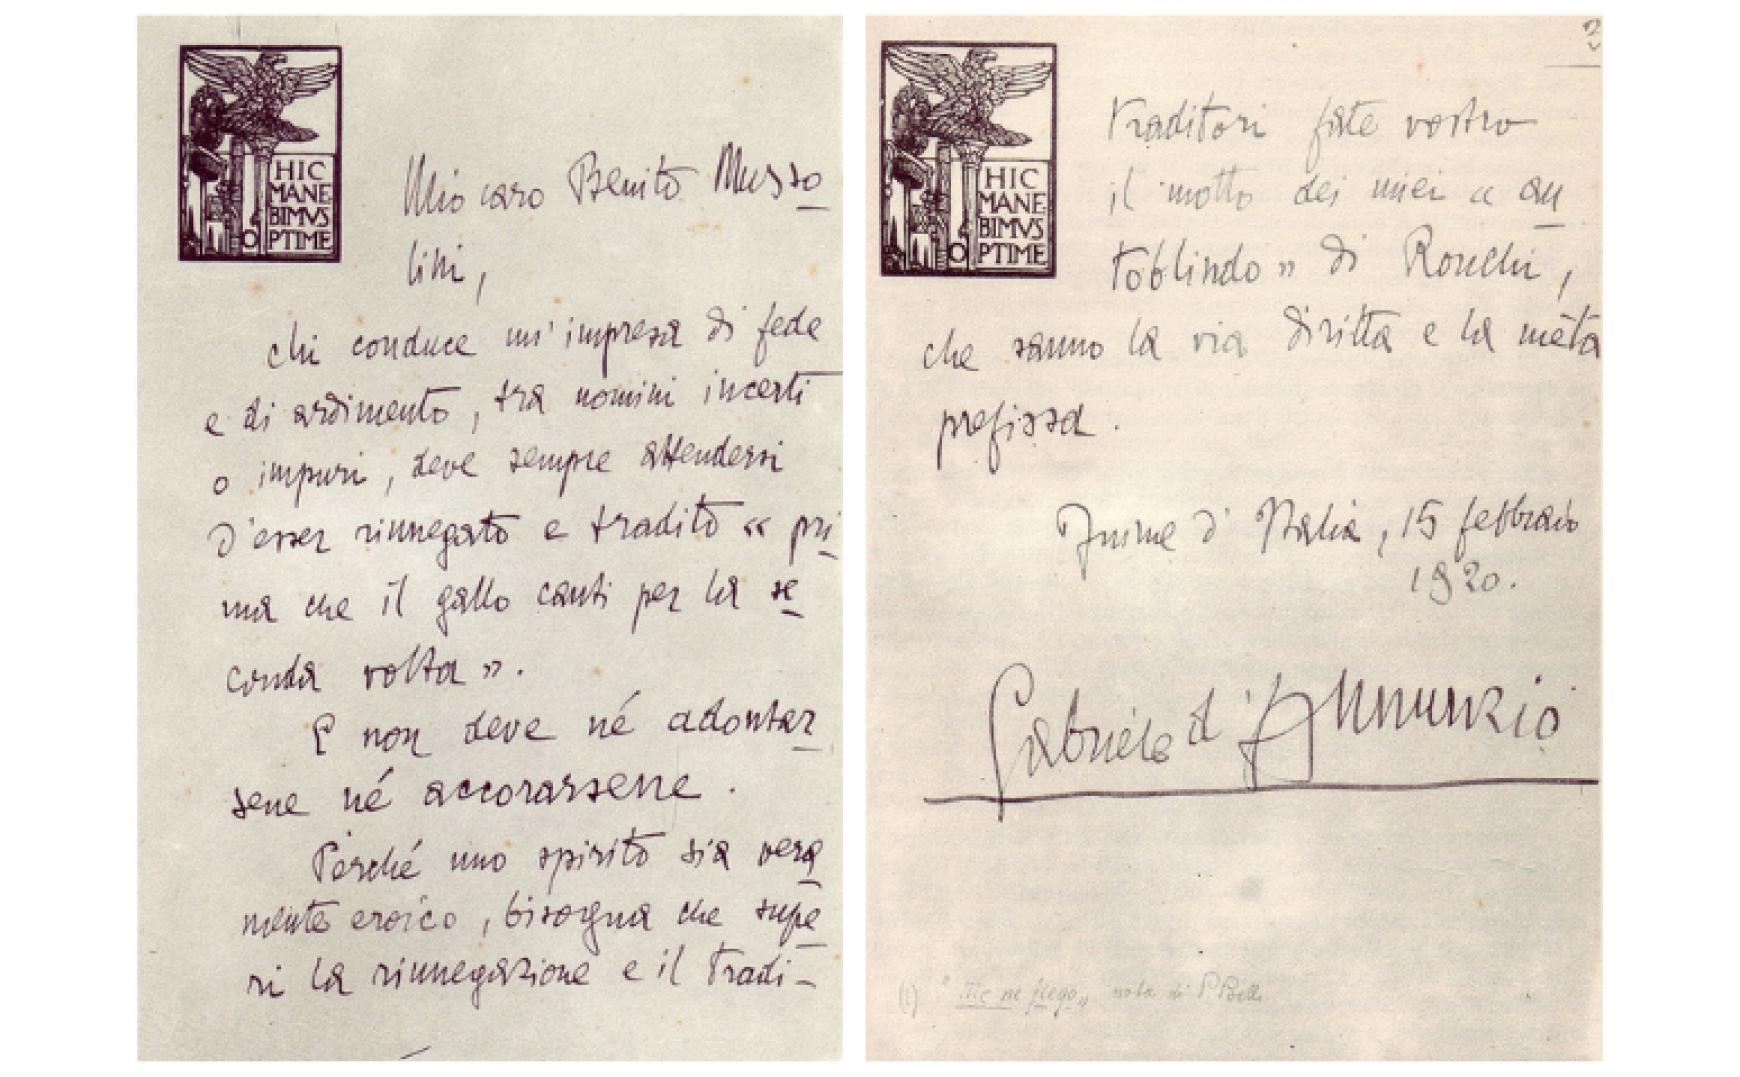 HIC
MANE
BIMVS
OPTIME
Mio caro Benito Musso
lini,
chi conduce un'impresa di fede
e di ardimento, tra uomini incerti
o impuri, deve sempre attendersi
d'esser rinnegato e tradito « pri
ma che il gallo canti per la se
conda volta ».
E non deve né adontar
sene né accorarsene.
Perché uno spirito sia vera
mente eroico, bisogna che supe
ri la rinnegazione e il tradi-
2
HIC
MANE
BIMVS
OPTIME
Traditori fate vostro
il motto dei miei « au
toblindo » di Ronchi,
che sanno la via diritta e la mèta
prefissa.
Fiume d'Italia, 15 febbraio
1920.
Gabriele d'Annunzio
(1) "Me ne frego" nota di P. Belli